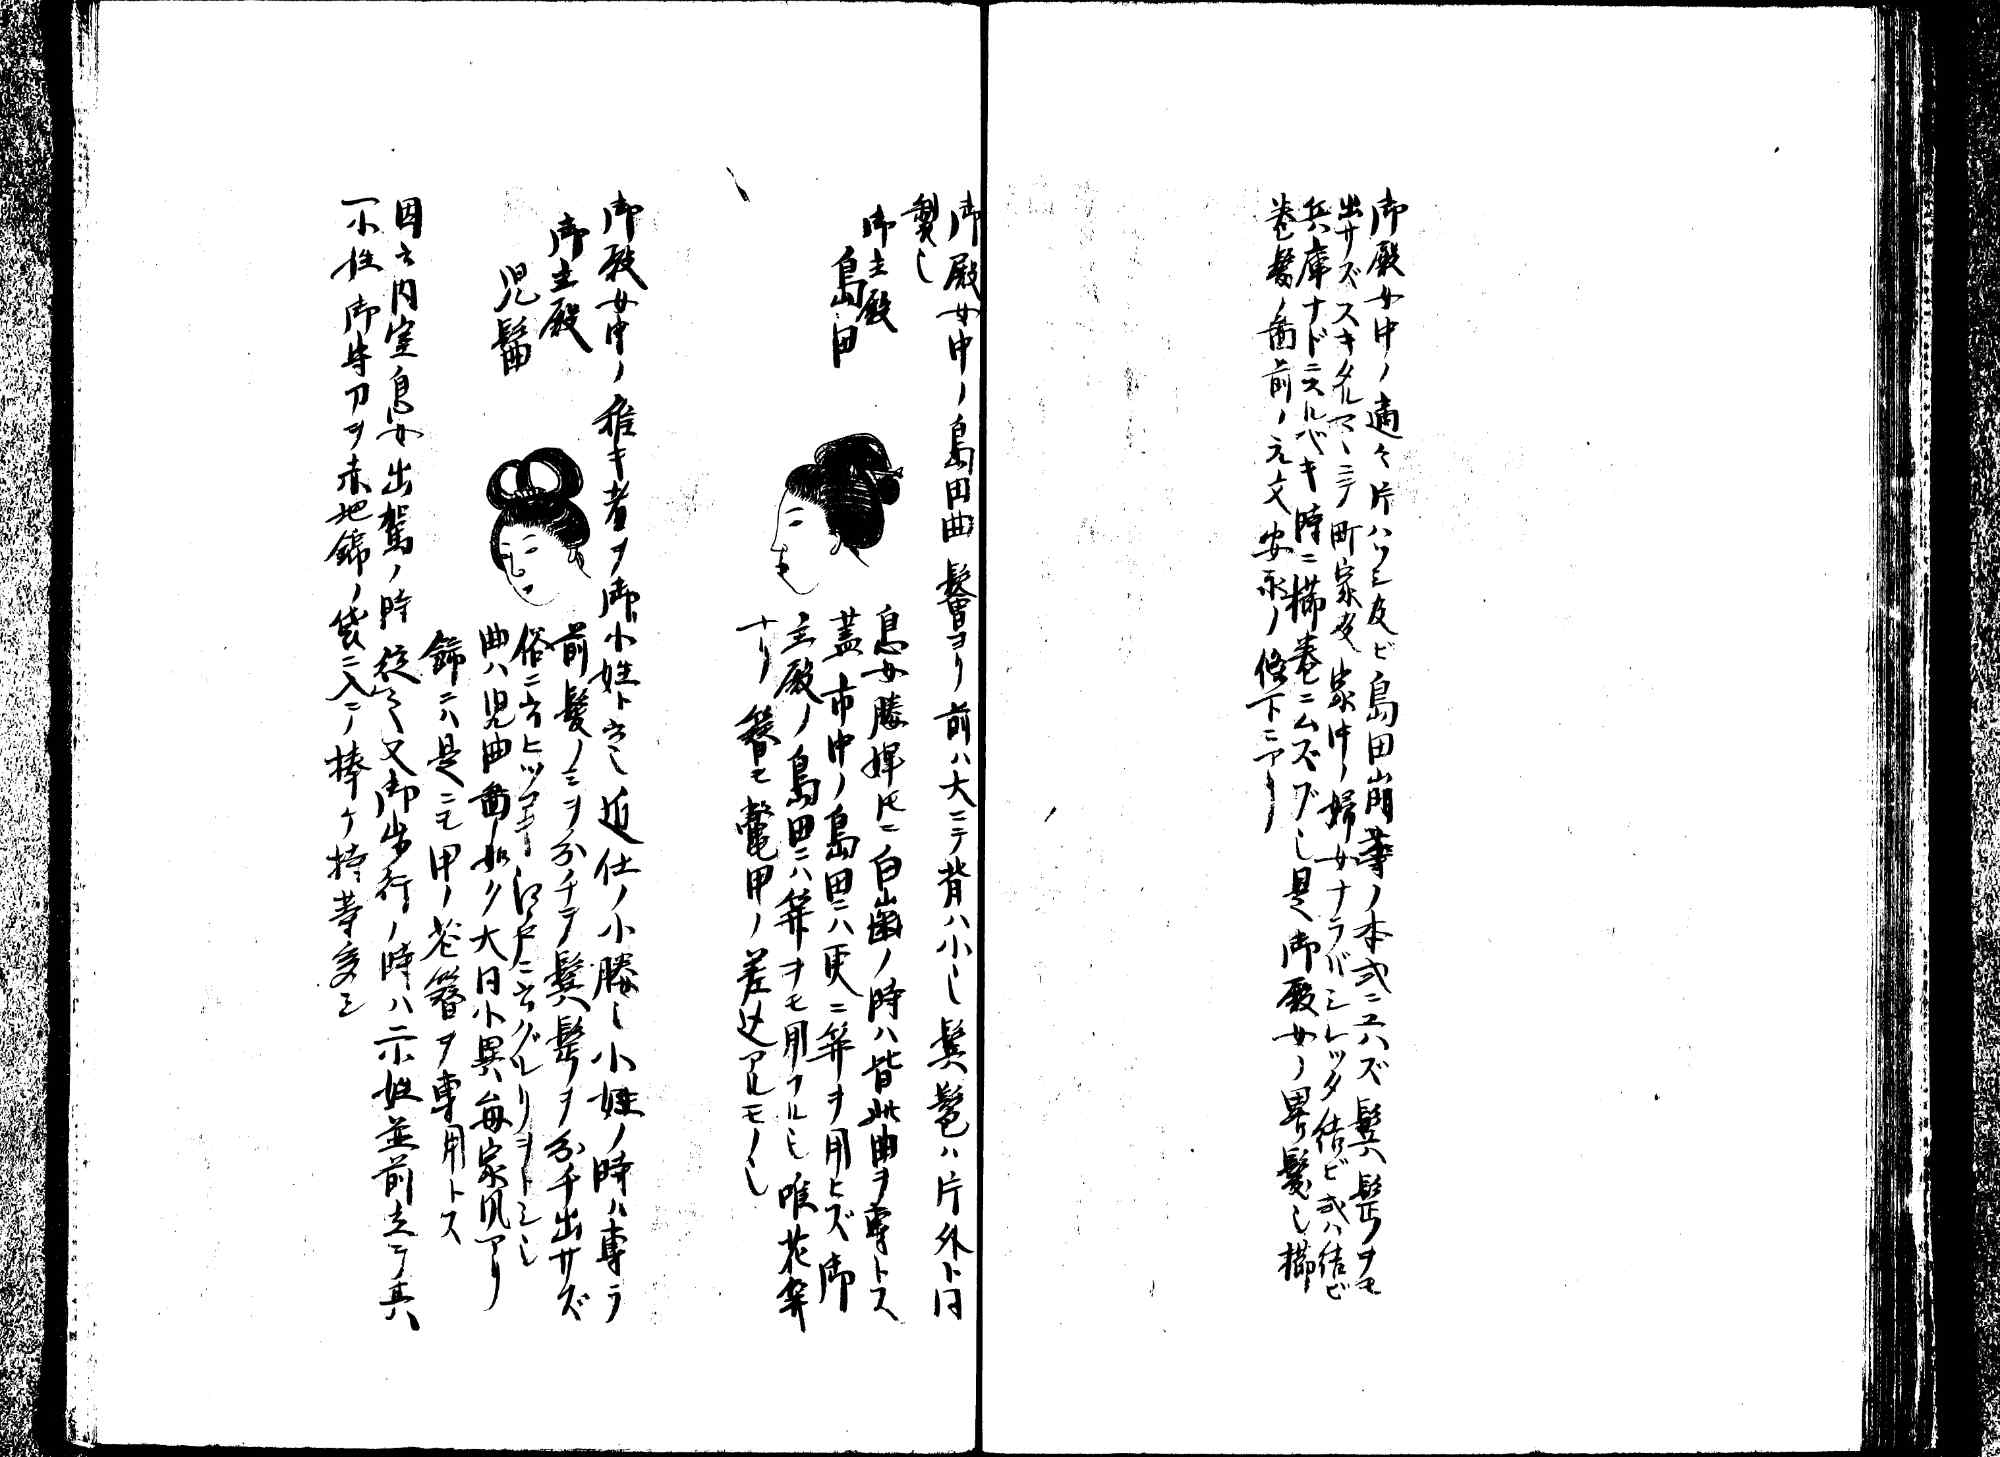 御殿女中ノ適々片ハヅシ及ビ島田崩等ノ本式ニ云ハズ鬂髩ヲモ
出サズスキタルマヽニテ町家及家中ノ婦女ナラバシレッタ結ビ或ハ結ビ
兵庫ナドニスルベキ時ニ櫛巻ニムズブ也是御殿女ノ畧リ髪也櫛
巻髷ノ畵前ノ元文安永ノ條下ニアリ
御殿女中ノ島田曲髷ヨリ前ハ大ニテ背ハ小也鬂髱ハ片外ト同
製也
御主殿
島田
息女嬪婢トモニ白歯ノ時ハ皆此曲ヲ專トス
蓋市中ノ島田ニハ更ニ笄ヲ用ヒズ御
主殿ノ島田ニハ笄ヲモ用フル也唯花笄
ナリ簪モ鼈甲ノ差込アルモノ也
御殿女中ノ稚キ者ヲ御小姓ト云也近仕ノ小勝也小姓ノ時ハ專ラ
御主殿
児髷
前髪ノミヲ分チテ鬂髩ヲ分チ出サズ
俗ニ云ヒッコキ江戸ニ云グルリヲトシ也
曲ハ児曲畵ノ如ク大同小異毎家風アリ
飾ニハ是ニモ甲ノ花簪ヲ專用トス
因云内室息女出駕ノ時従之又御歩行ノ時ハ二小姓並前立テ其
一小姓御守刀ヲ赤地錦ノ袋ニ入テ捧ケ持等多シ